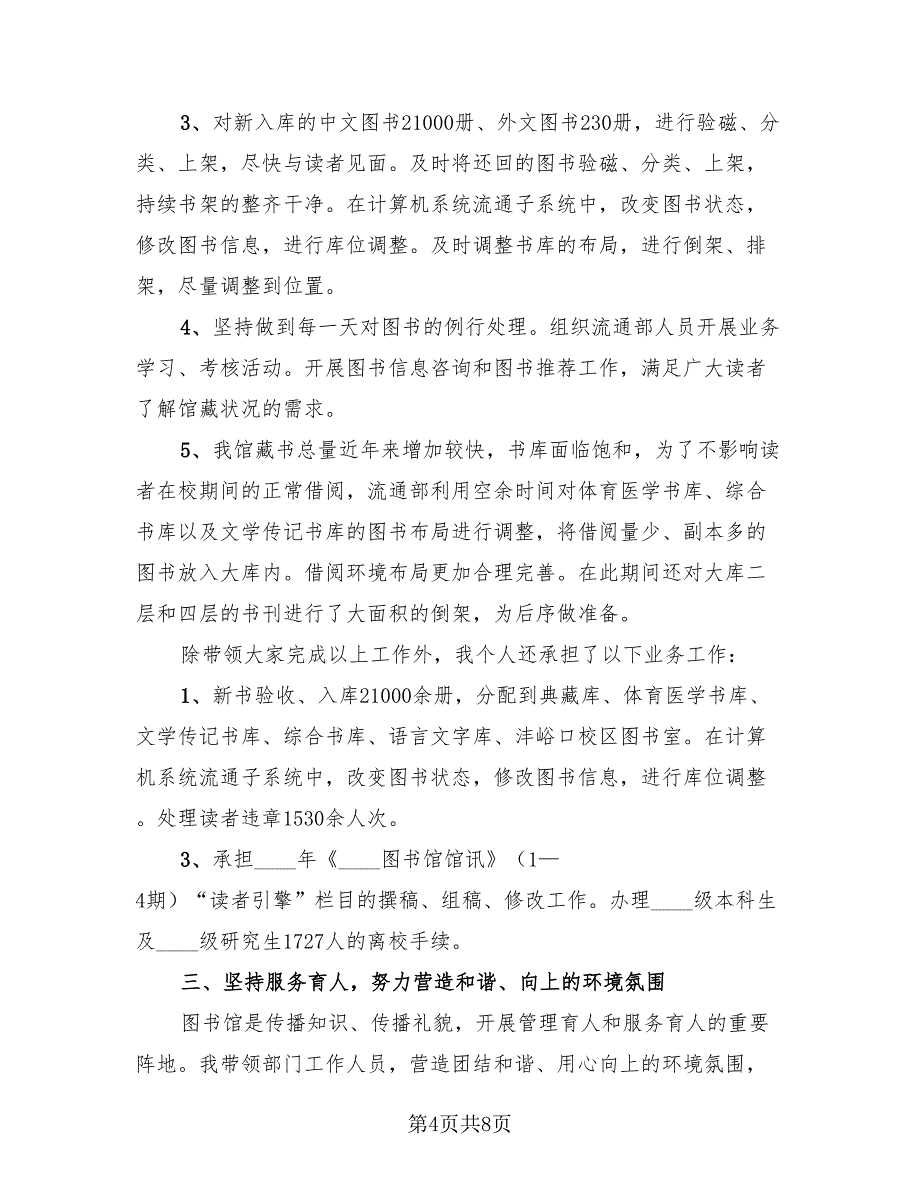 3、对新入库的中文图书21000册、外文图书230册，进行验磁、分
类、上架，尽快与读者见面。及时将还回的图书验磁、分类、上架，
持续书架的整齐干净。在计算机系统流通子系统中，改变图书状态，
修改图书信息，进行库位调整。及时调整书库的布局，进行倒架、排
架，尽量调整到位置。
4、坚持做到每一天对图书的例行处理。组织流通部人员开展业务
学习、考核活动。开展图书信息咨询和图书推荐工作，满足广大读者
了解馆藏状况的需求。
5、我馆藏书总量近年来增加较快，书库面临饱和，为了不影响读
者在校期间的正常借阅，流通部利用空余时间对体育医学书库、综合
书库以及文学传记书库的图书布局进行调整，将借阅量少、副本多的
图书放入大库内。借阅环境布局更加合理完善。在此期间还对大库二
层和四层的书刊进行了大面积的倒架，为后序做准备。
除带领大家完成以上工作外，我个人还承担了以下业务工作：
1、新书验收、入库21000余册，分配到典藏库、体育医学书库、
文学传记书库、综合书库、语言文字库、沣峪口校区图书室。在计算
机系统流通子系统中，改变图书状态，修改图书信息，进行库位调整
。处理读者违章1530余人次。
3、承担____年《____图书馆馆讯》（1—
4期）“读者引擎”栏目的撰稿、组稿、修改工作。办理____级本科生
及____级研究生1727人的离校手续。
三、坚持服务育人，努力营造和谐、向上的环境氛围
图书馆是传播知识、传播礼貌，开展管理育人和服务育人的重要
阵地。我带领部门工作人员，营造团结和谐、用心向上的环境氛围，
第4页共8页